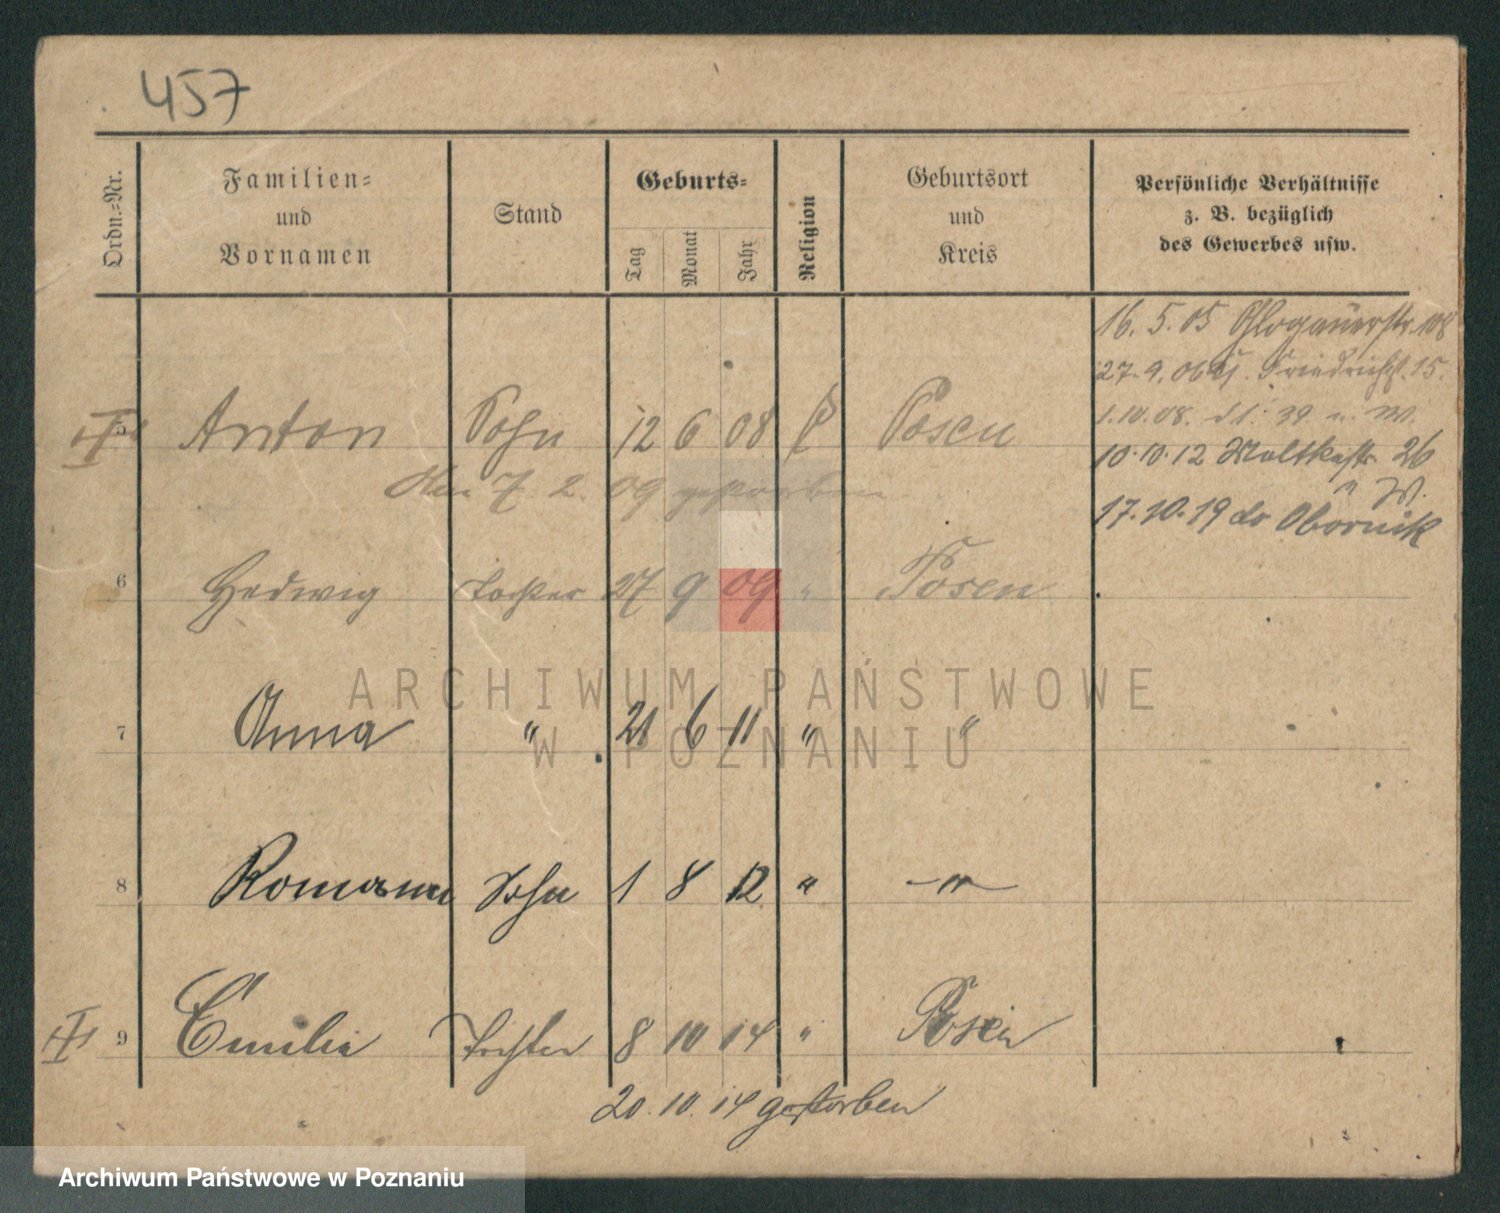 457
Ordn.-Nr.
Familien- und Vornamen
Stand
Geburts-
Tag Monat Jahr
Religion
Geburtsort und Kreis
Persönliche Verhältnisse z. B. bezüglich des Gewerbes usw.
16. 5. 05 Glogauerstr. 108
27. 9. 06 Friedrichst. 15.
1. 10. 08. 39
5 Anton Sohn 12 6 08 Posen
10. 10. 12 Moltkestr. 26
Am 7. 2. 09 gestorben
17. 10. 19 Obornik
6 Hedwig Tochter 27 9 09 " Posen
ARCHIWUM PAŃSTWOWE
7 Anna " 21 6 11 " "
W POZNANIU
8 Romann Sohn 1 8 12 " —"—
9 Emilie Tochter 8 10 14 " Posen
20. 10. 14 gestorben
Archiwum Państwowe w Poznaniu